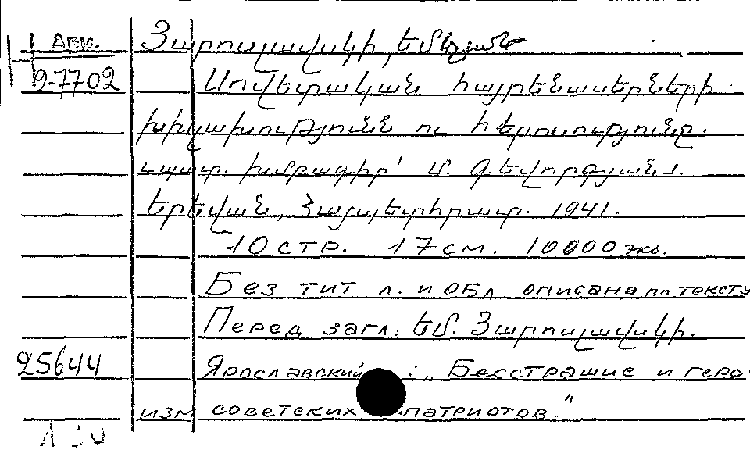 1 АРМ. Յարոսլավսկի, Եմելյան
2-7702 Սովետական հայրենասերների
խիզախությունն ու հերոսությունը.
պատ. խմբագիր՝ Մ. Գեվորգյան.
Երեվան, Հայպետհրատ. 1941.
10 стр. 17 см. 10000 экз.
Без тит л. и обл описана по тексту
Перед загл: Եմ. Յարոսլավսկի.
25644 Ярославский : „Бесстрашие и геро-
изм советских патриотов"